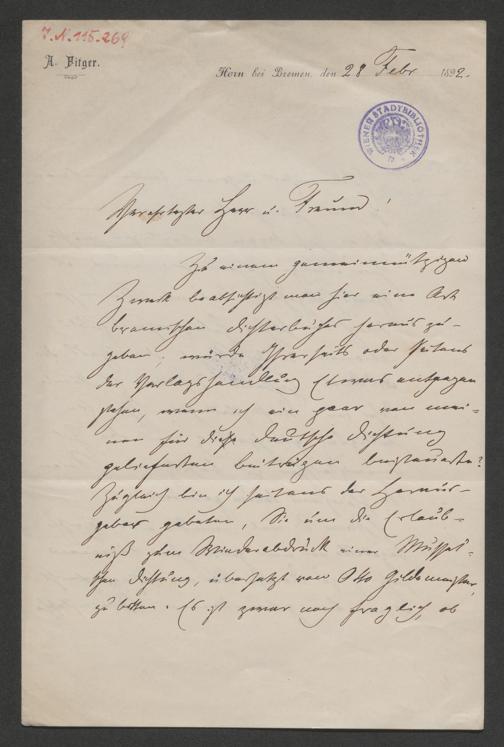 J.N. 115.269
A. Fitger.
Horn bei Bremen, den 28 Febr 1892.
WIENER STADTBIBLIOTHEK
Verehrtester Herr u. Freund!
Zu einem gemeinnützigen
Zweck beabsichtigt man hier eine Art
bremischen Dichterbuches herauszu-
geben; würde Ihrerseits oder seitens
der Verlagshandlung Etwas entgegen
stehen, wenn ich ein paar von mei-
nen für die deutsche Dichtung
gelieferten Beiträgen beisteuerte?
Zugleich bin ich seitens der Heraus-
geber gebeten, Sie um die Erlaub-
niß zum Wiederabdruck einer Musset-
schen Dichtung, übersetzt von Otto Gildemeister,
zu bitten. Es ist zwar noch fraglich, ob